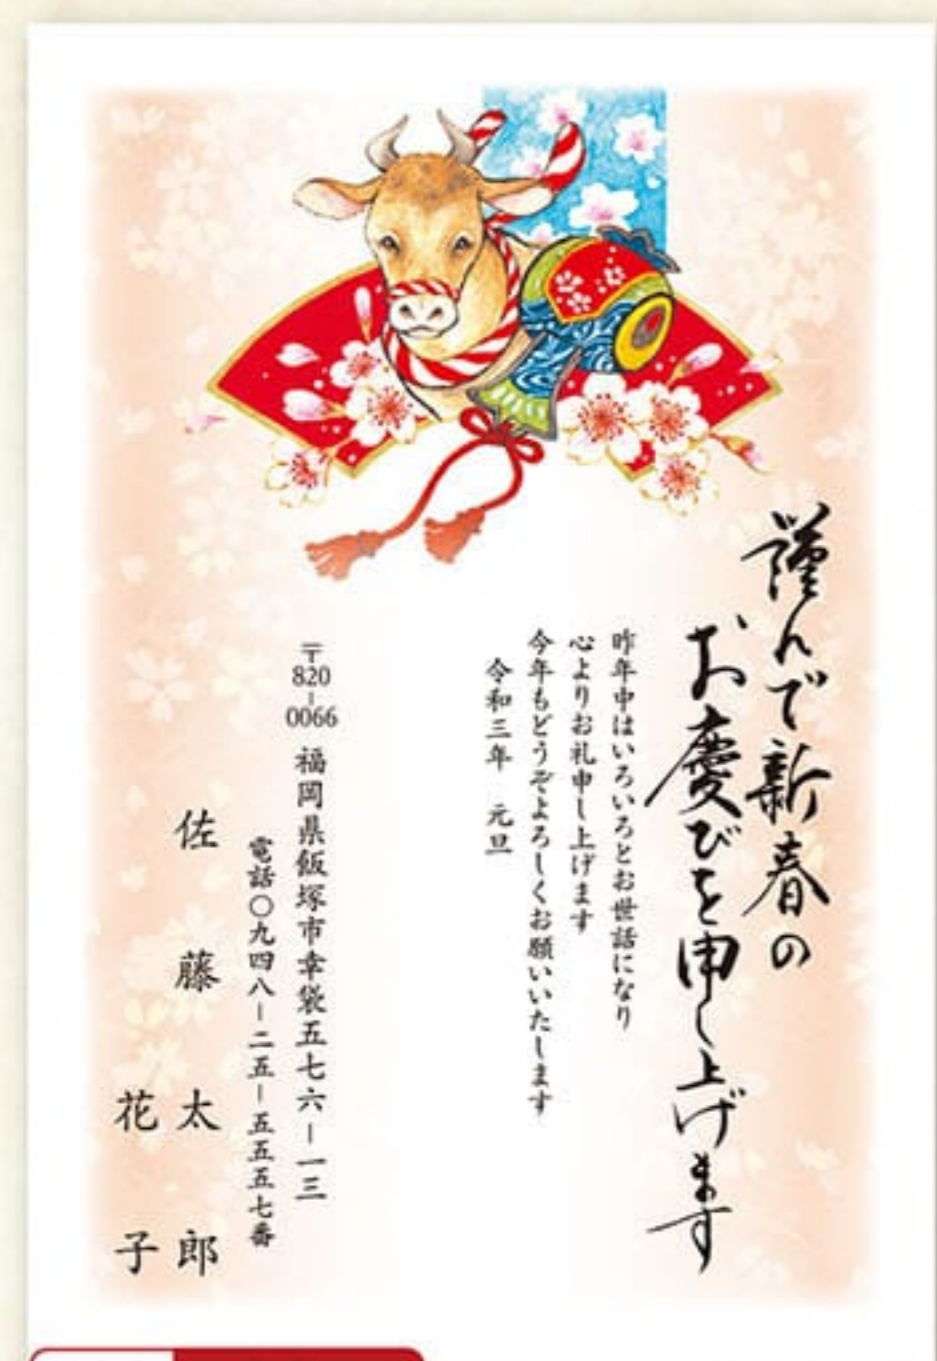 謹んで新春の
お慶びを申し上げます
昨年中はいろいろとお世話になり
心よりお礼申し上げます
今年もどうぞよろしくお願いいたします
令和三年　元旦
〒820-0066 福岡県飯塚市幸袋五七六－一三
電話〇九四八－二五－五五五七番
佐藤太郎
花子